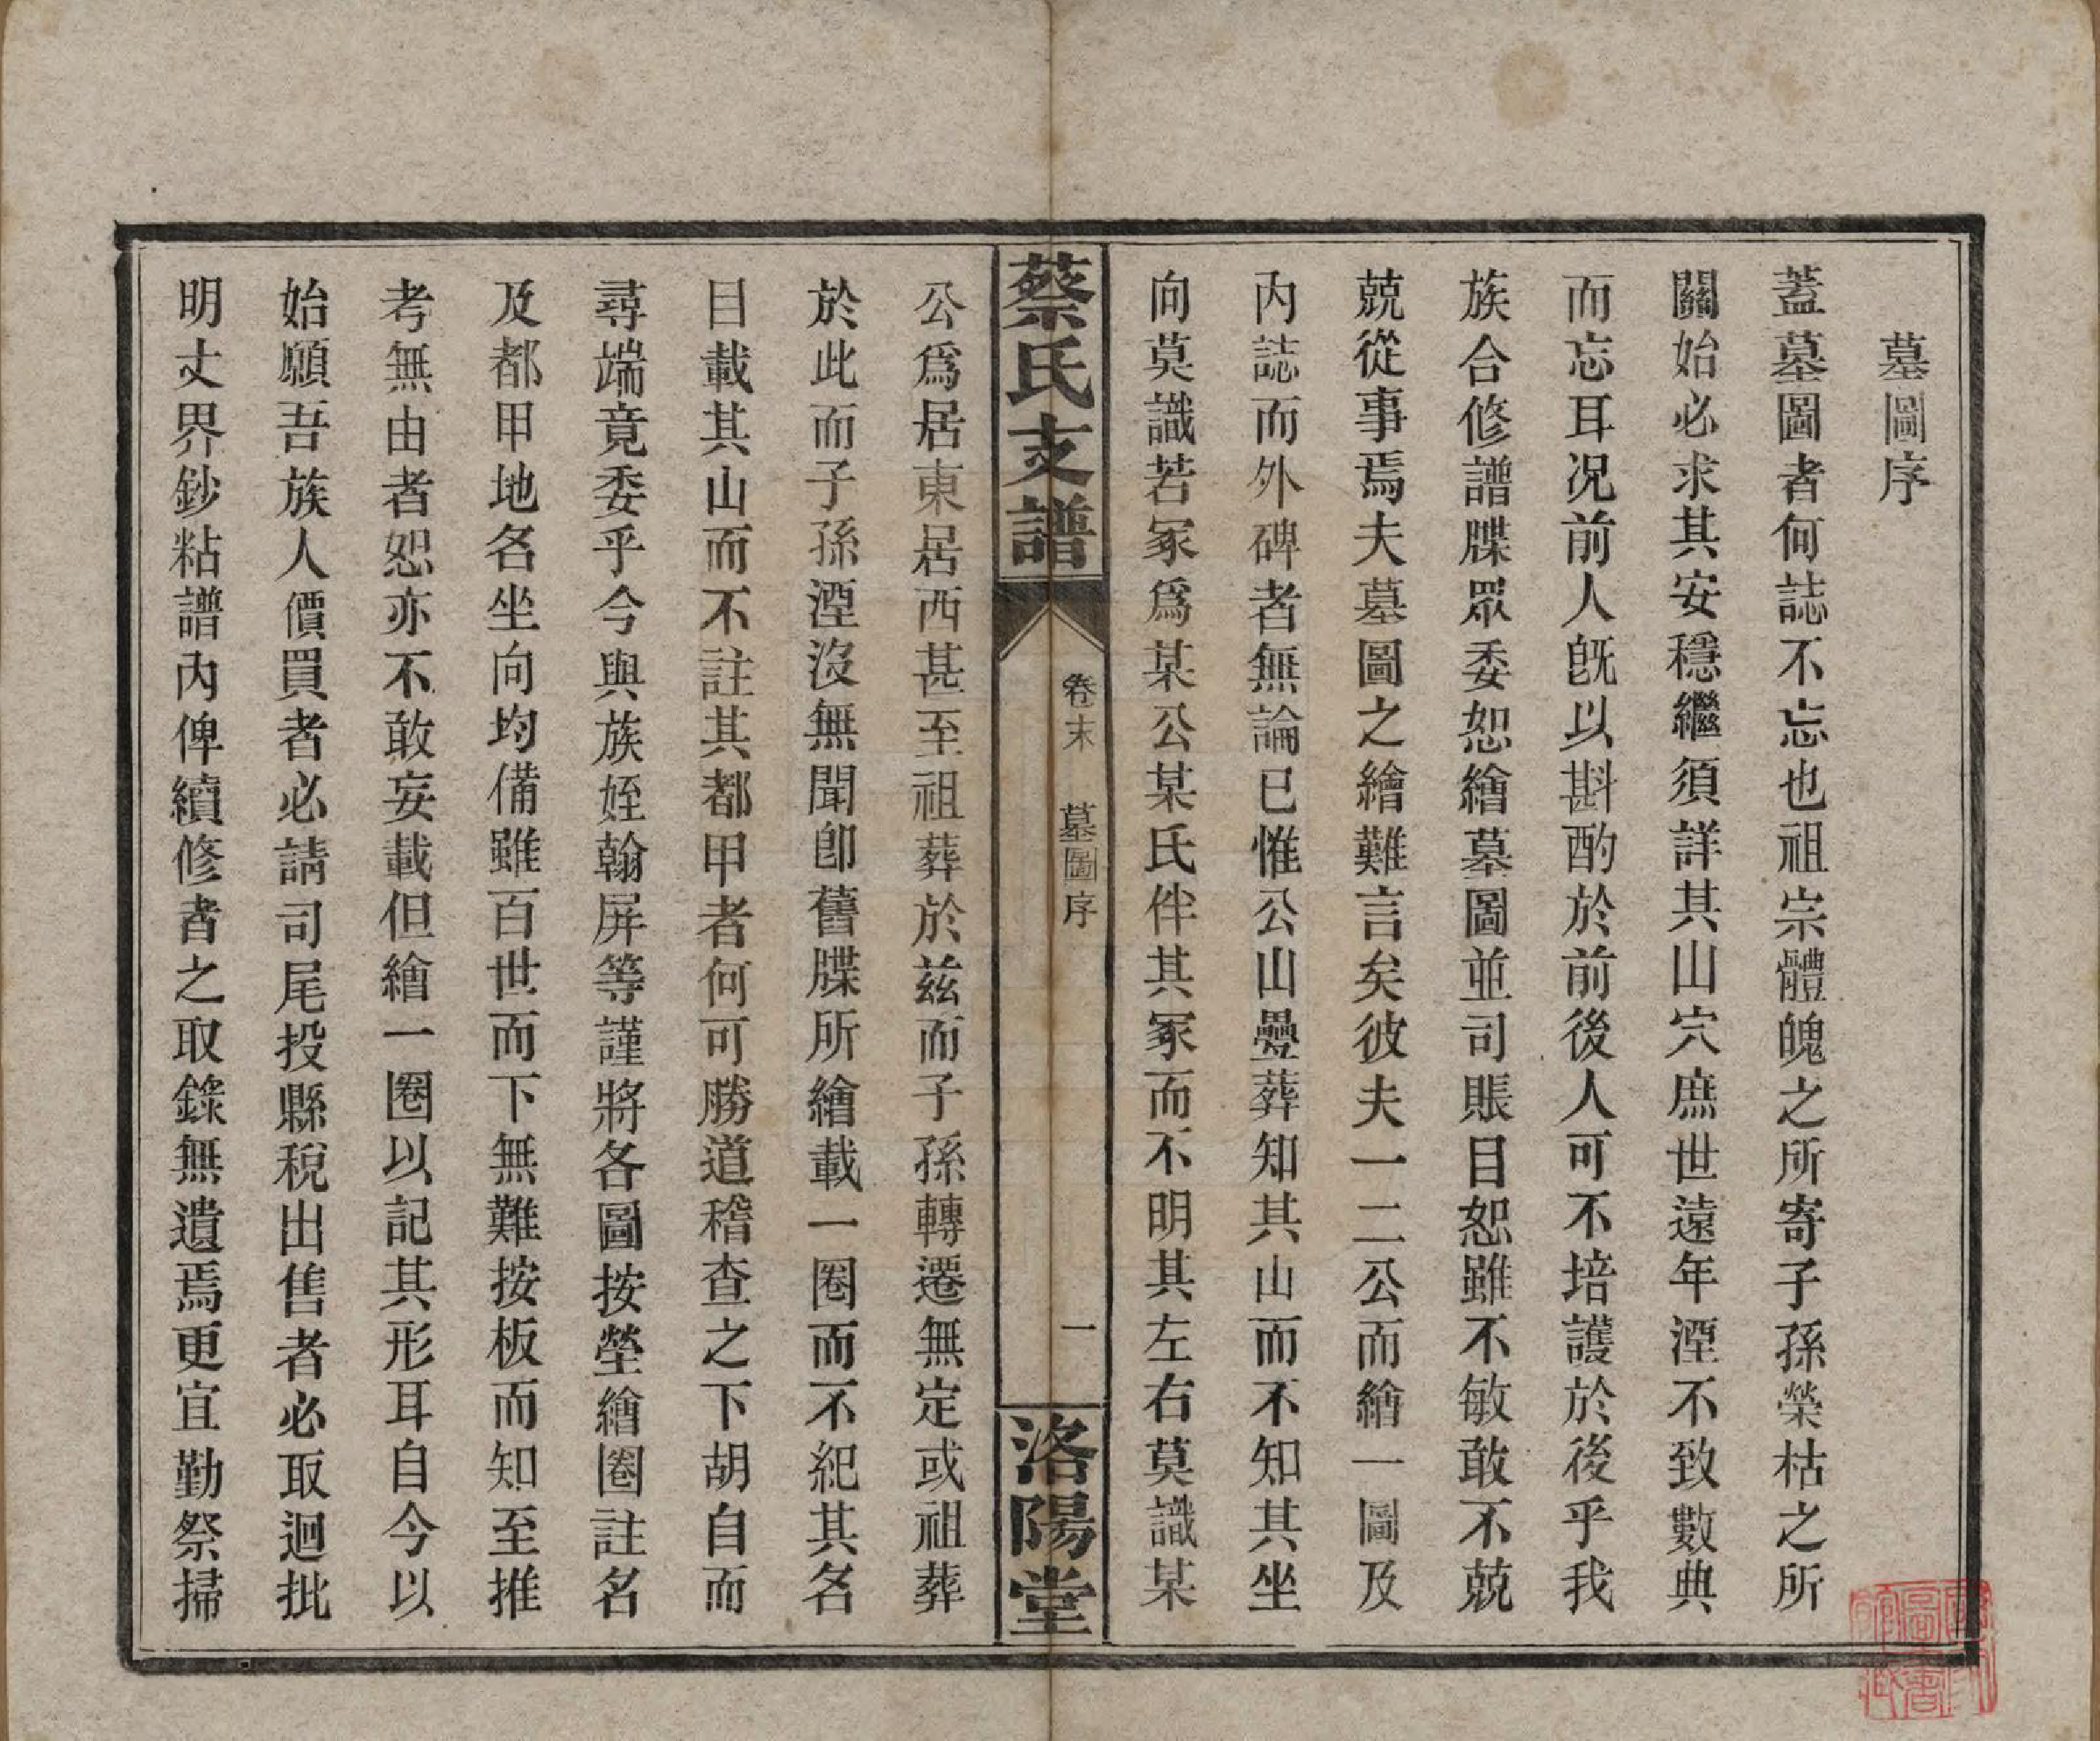 墓圖序
蓋墓圖者何誌不忘也祖宗體魄之所寄子孫榮枯之所
關始必求其安穩繼須詳其山穴庶世遠年湮不致數典
而忘耳况前人旣以斟酌於前後人可不培護於後乎我
族合修譜牒眾委恕繪墓圖並司賬目恕雖不敏敢不兢
兢從事焉夫墓圖之繪難言矣彼夫一二公而繪一圖及
內誌而外碑者無論已惟公山疊葬知其山而不知其坐
向莫識若冢爲某公某氏伴其冢而不明其左右莫識某
蔡氏支譜
卷末
墓圖序
一
洛陽堂
公爲居東居西甚至祖葬於茲而子孫轉遷無定或祖葬
於此而子孫湮沒無聞卽舊牒所繪載一圈而不紀其名
目載其山而不註其都甲者何可勝道稽查之下胡自而
尋端竟委乎今與族姪翰屏等謹將各圖按塋繪圈註名
及都甲地名坐向均備雖百世而下無難按板而知至推
考無由者恕亦不敢妄載但繪一圈以記其形耳自今以
始願吾族人價買者必請司尾投縣稅出售者必取迴批
明丈界鈔粘譜內俾續修者之取錄無遺焉更宜勤祭掃